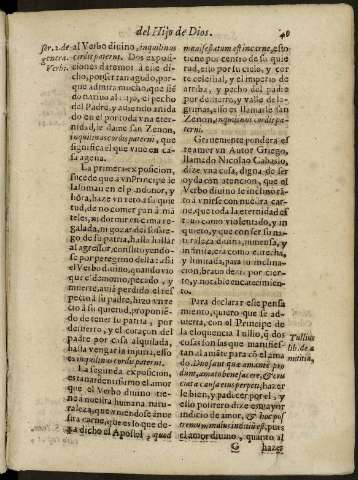 del Hijo de Dios.
48
ser. 2. de
genera.
Verbi.
al Verbo divino, inquilinus
cordis paterni. Dos exposi-
ciones daremos à este di-
cho, por ser tan agudo, por-
que admira mucho, que siē
do nativo al hijo, el pecho
del Padre, y aviendo anida
do en el por toda vna eter-
nidad, le llame san Zenon,
inquilinus cordis paterni, que
significa el que vive en ca-
sa agena.
La primera exposicion,
sucede que à vn Principe le
lastiman en el pundonor, y
hōra, haze vn reto à su quie
tud, de no comer pan à ma
teles, ni dormir en cama re-
galada, ni gozar del sosie-
go de su patria, hasta hallar
al agressor, constituyendo-
se por peregrino della: assi
el Verbo divino, quando viò
que el demonio, pecado, y
muerte, avia perdido el res
peto à su padre, hizo vn re
to à su quietud, proponiē-
do de tener su patria, por
destierro, y el coraçon del
padre por casa alquilada,
hasta vengar la injuria, esso
es inquilinus cordis paterni.
La segunda exposicion,
està
el amor
que el Verbo divino tie-
ne à nuestra humana natu-
raleza, que aviendose de
stra carne, que es lo que de-
ga dicho el Apostol, quod
manifestatum est in carne, esto
tiene por centro de su quie
tud, esto por su cielo, y cor
te celestial, y el imperio de
arriba, y pecho del padre
por destierro, y valle de la-
grimas, esso es llamarle san
Zenon, inquilinus cordis pa-
terni.
Gravemente pondera es
te amor vn Autor Griego,
llamado Nicolao Cabasio,
dize vna cosa, digna de ser
oyda con atencion, que el
Verbo divino le inclinò tā-
to à vnirse con nuestra car-
ne, que toda la eternidad es
tuvo como violentado, y in
quieto, y que con ser su na-
turaleza divina, inmensa, y
infinita, era como estrecha,
y limitada, para su inclina-
cion, bravo dezir por cier-
to, y no cabe encarecimien-
to.
Para declarar este pensa
miento, quiero que se ad-
vierta, con el Principe de
la eloquencia Tullio, q̄ dos
cosas son las que manifies-
tan al amāte para cō el ama
do. Duo sunt quæ amantē pro
dunt, amato benefacere, & cru
ciatus causa eius perpeti, hazer
le bien, y padecer por el, y
esto postrero dize es mayor
indicio de amor, & hoc pos
tremum, maius indicium est, pues
el amor divino, quanto al
Tullius
lib. de a
micitia.
G
hazer